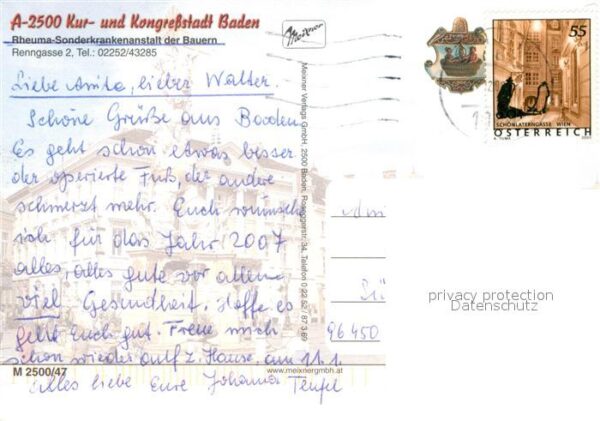 A-2500 Kur- und Kongreßstadt Baden
Rheuma-Sonderkrankenanstalt der Bauern
Renngasse 2, Tel.: 02252/43285
Meixner
Liebe Anita, lieber Walter.
Schöne Grüße aus Baden.
Es geht schon etwas besser
der operierte Fuß, der andere
schmerzt mehr. Euch wünsche
ich für das Jahr 2007
alles, alles gute vor allem
viel Gesundheit. Hoffe es
geht Euch gut. Freue mich
schon wieder auf z. Hause, am 11.1.
Alles liebe Eure Johanna Teufel
M 2500/47
www.meixnergmbh.at
Meixner Verlags GmbH, 2500 Baden, Roseggerstr. 34, Telefon 0 22 52 / 87 3 69
55
SCHÖNLATERNGASSE WIEN
ÖSTERREICH
96450
privacy protection
Datenschutz